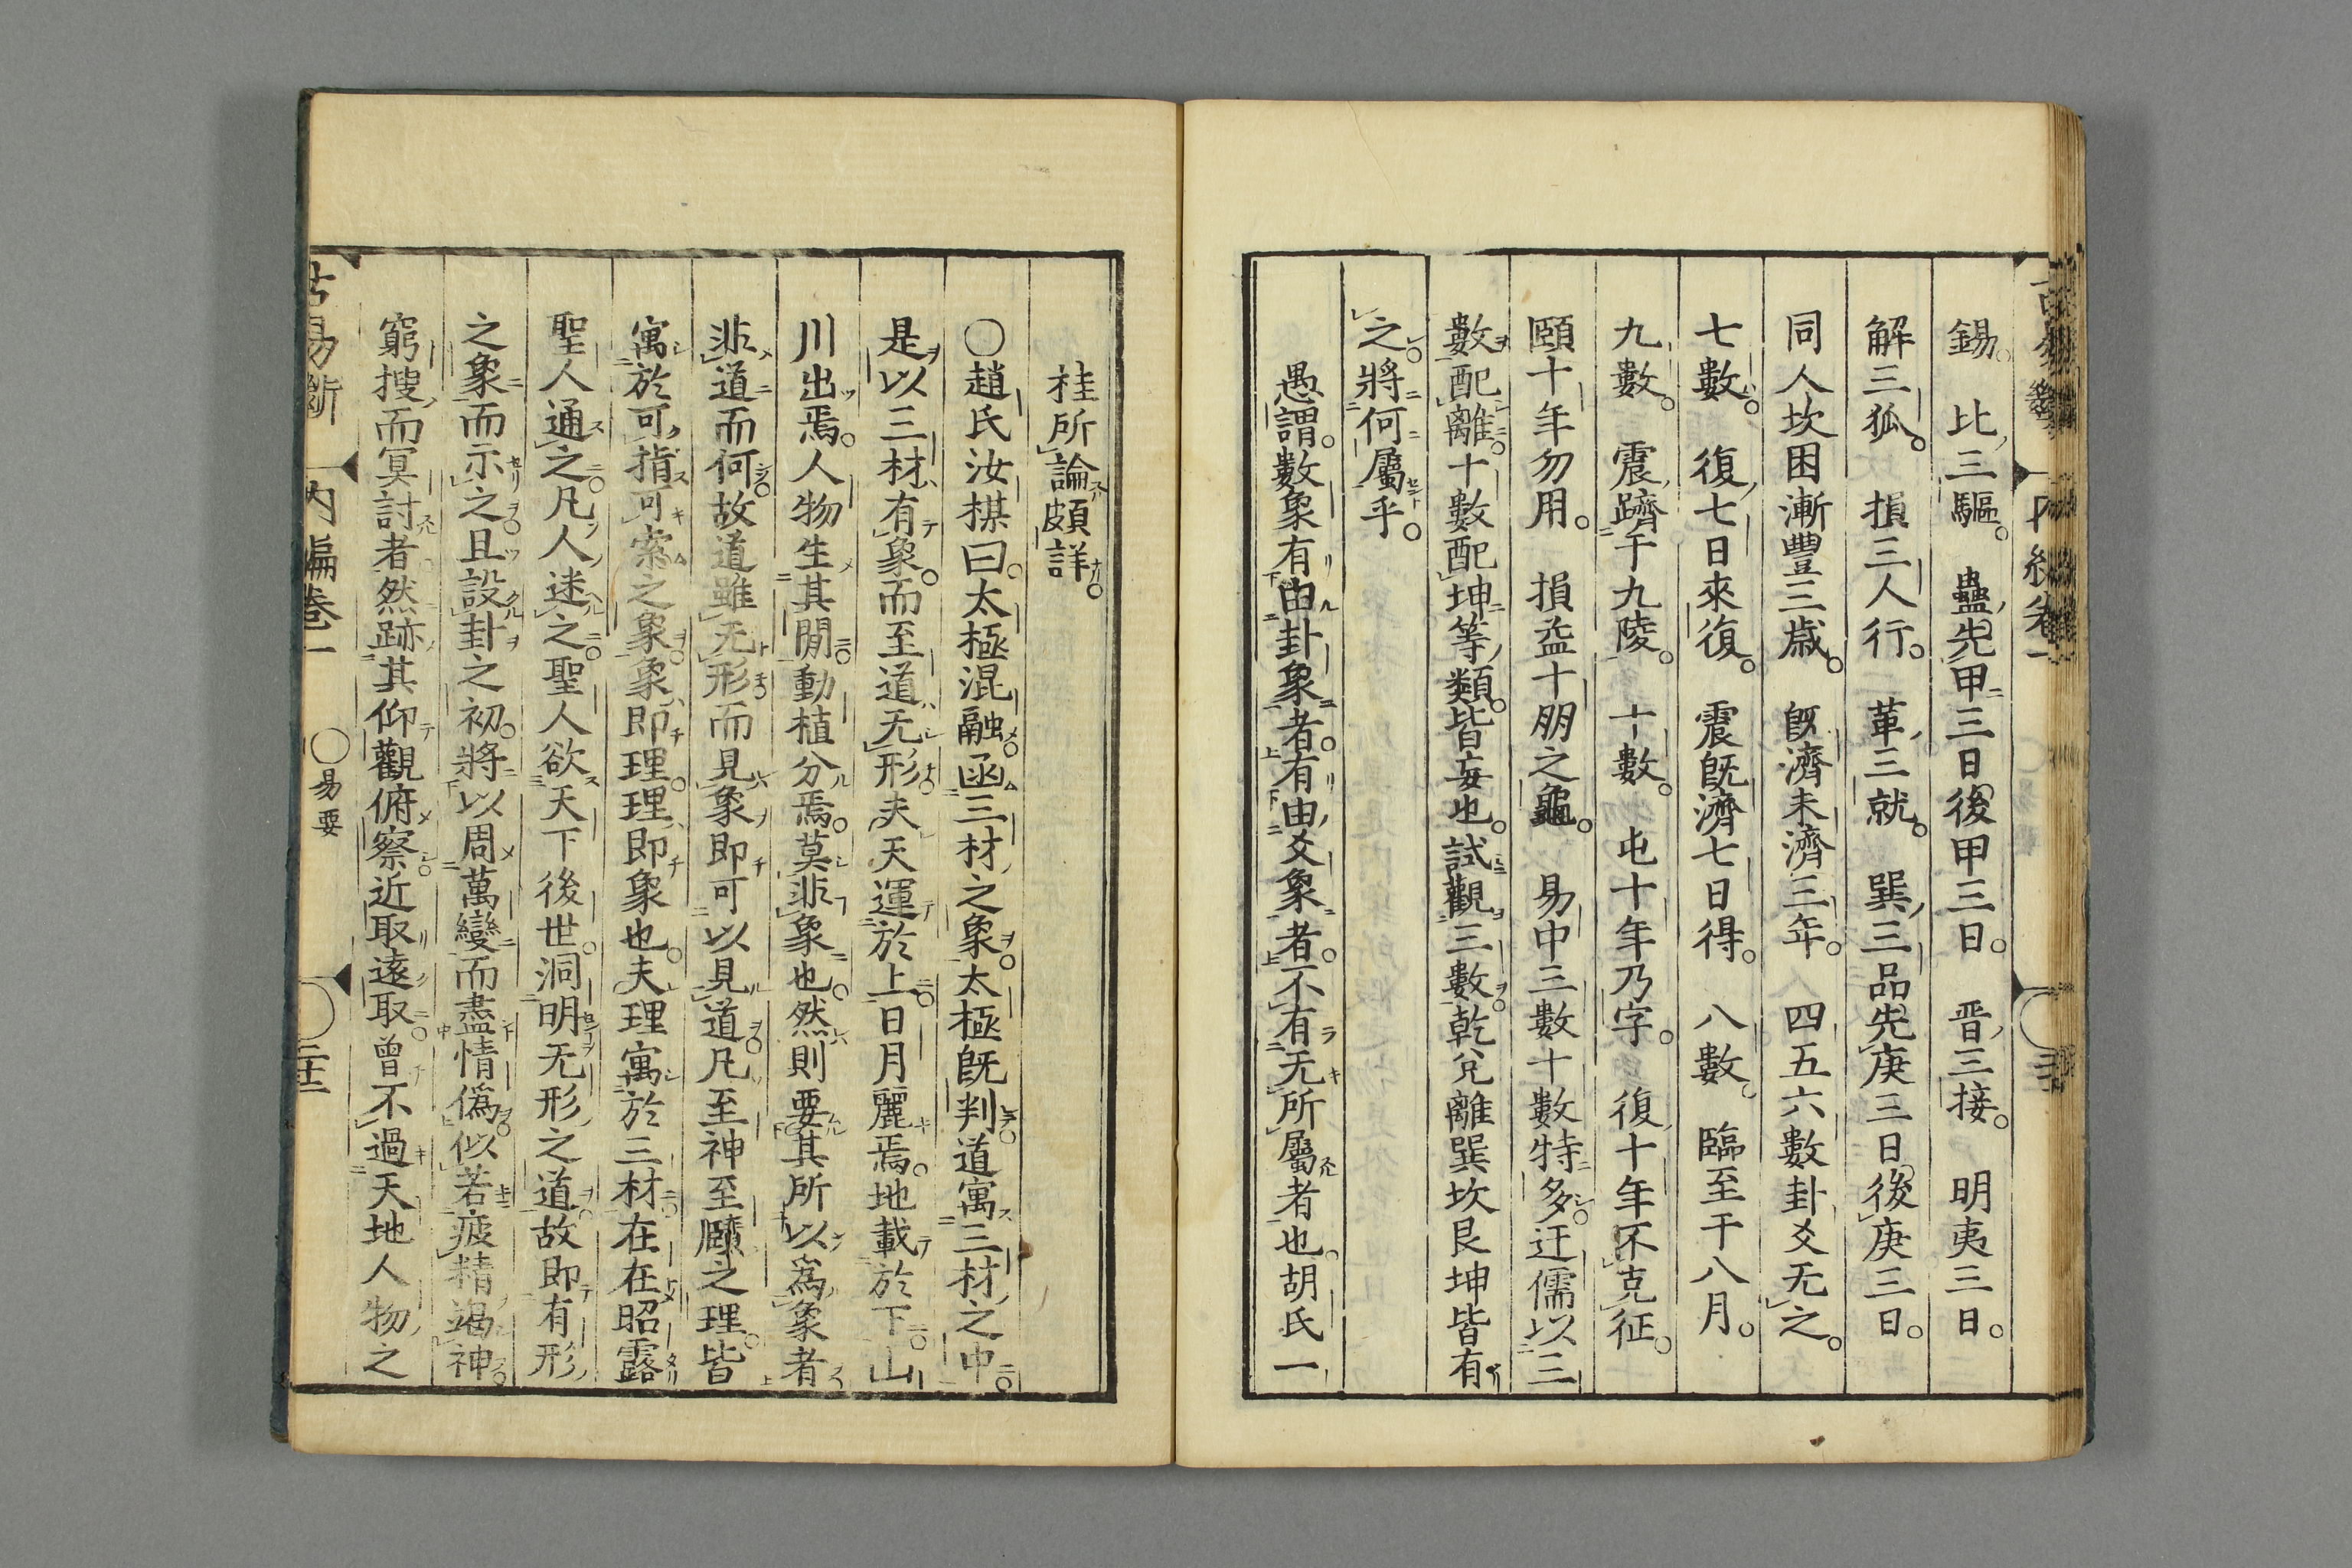 錫。比三驅。蠱先甲三日後甲三日。晋三接。明夷三日。
解三狐。損三人行。革三就。巽三品先庚三日後庚三日。
同人坎困漸豐三歳。旣濟未濟三年。四五六數卦爻无之。
七數。復七日來復。震旣濟七日得。八數。臨至于八月。
九數。震躋于九陵。十數。屯十年乃字。復十年不克征。
頤十年勿用。損益十朋之龜。易中三數十數特多迂儒以三
數配離十數配坤等類皆妄也。試觀三數乾兌離巽坎艮坤皆有
之。將何屬乎。
愚謂。數象有由卦象者。有由爻象者。不有无所屬者也。胡氏一
桂所論頗詳。
○趙氏汝楳曰。太極混融函三材之象。太極旣判道寓三材之中
是以三材有象。而至道无形。夫天運於上。日月麗焉。地載於下。山
川出焉。人物生其閒。動植分焉。莫非象也。然則要其所以爲象者
非道而何。故道雖无形而見象即可以見道。凡至神至賾之理。皆
寓於可指可索之象。象即理。理即象也。夫理寓於三材在在昭露
聖人通之。凡人迷之。聖人欲天下後世。洞明无形之道。故即有形
之象而示之。且設卦之初。將以周萬變而盡情僞。似若疲精竭神
窮搜而冥討者。然跡其仰觀俯察。近取遠取。曾不過天地人物之
古易斷 内編卷一 ○易要